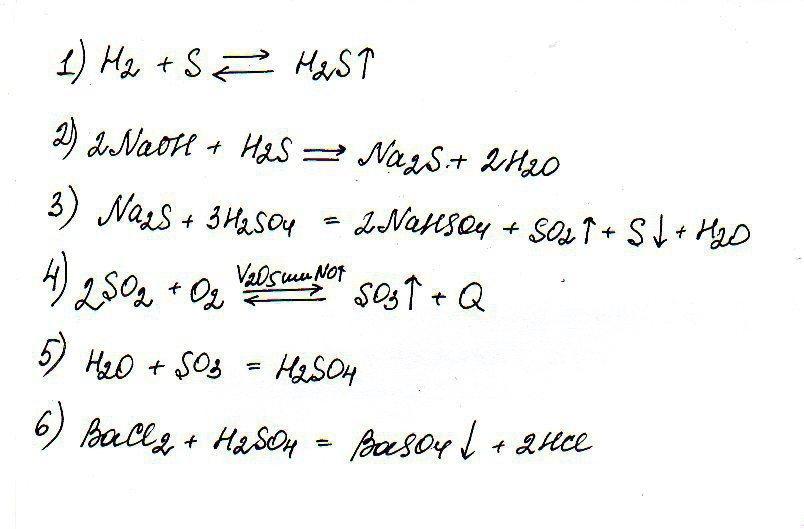 1) H2 + S ⇄ H2S↑
2) 2NaOH + H2S ⇒ Na2S + 2H2O
3) Na2S + 3H2SO4 = 2NaHSO4 + SO2↑ + S↓ + H2O
4) 2SO2 + O2 V2O5 или NO↑ ⇄ SO3↑ + Q
5) H2O + SO3 = H2SO4
6) BaCl2 + H2SO4 = BaSO4↓ + 2HCl